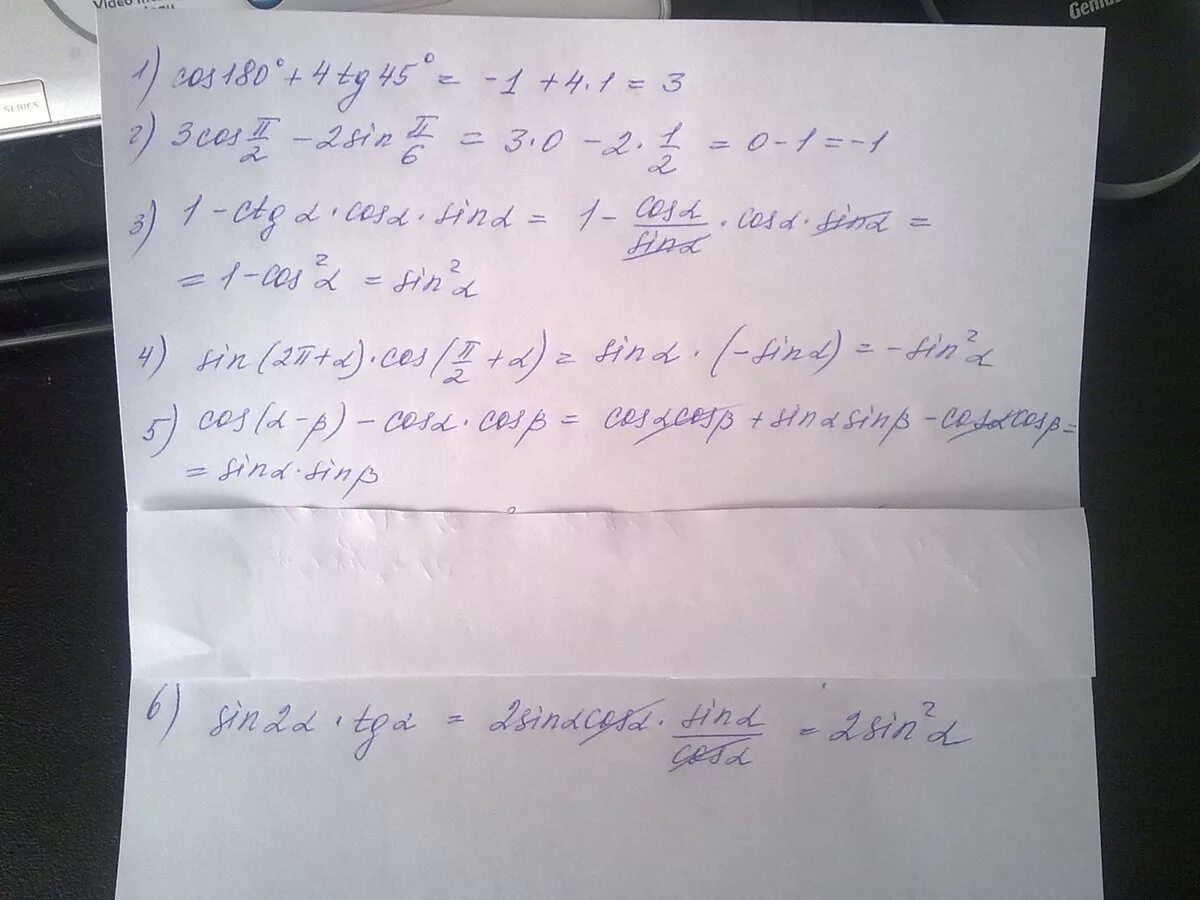 Video
Genius
SERIES
1) cos180° + 4tg45° = -1 + 4·1 = 3
2) 3cos π/2 - 2sin π/6 = 3·0 - 2·1/2 = 0-1 = -1
3) 1-ctgα·cosα·sinα = 1- cosα/sinα ·cosα·sinα =
= 1-cos²α = sin²α
4) sin(2π+α)·cos(π/2+α) = sinα·(-sinα) = -sin²α
5) cos(α-β)-cosα·cosβ = cosαcosβ + sinαsinβ - cosαcosβ =
= sinα·sinβ
6) sin2α·tgα = 2sinαcosα· sinα/cosα = 2sin²α